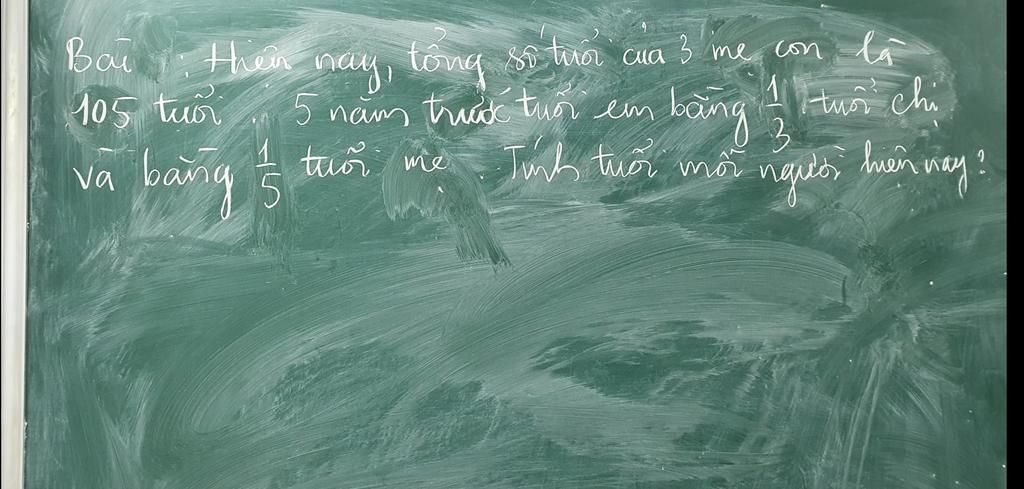 Bài : Hiện nay, tổng số tuổi của 3 mẹ con là
105 tuổi. 5 năm trước tuổi em bằng 1/3 tuổi chị
và bằng 1/5 tuổi mẹ. Tính tuổi mỗi người hiện nay?